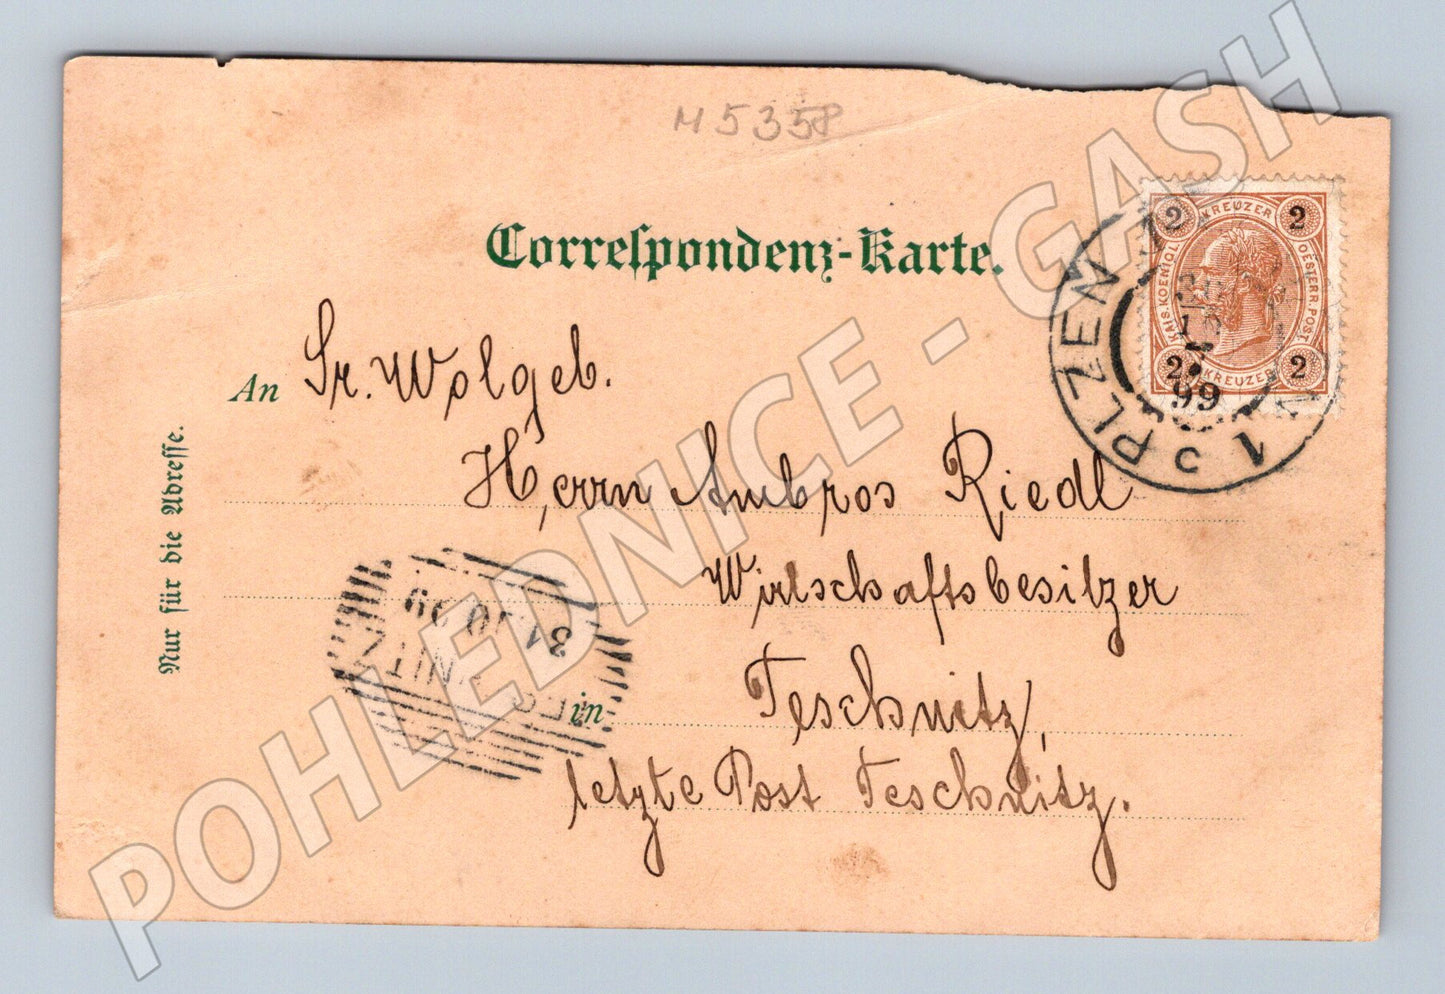 M 5358
Correspondenz-Karte.
An Sr. Wolgeb.
Herrn Ambros Riedl
Wirtschaftsbesitzer
in Teschnitz,
letzte Post Teschnitz.
Nur für die Adresse.
2 KREUZER 2
KAIS. KOENIGL.
OESTERR. POST.
2 KREUZER 2
PLZEŇ 1
99
31 10 99
POHLEDNICE - GASH